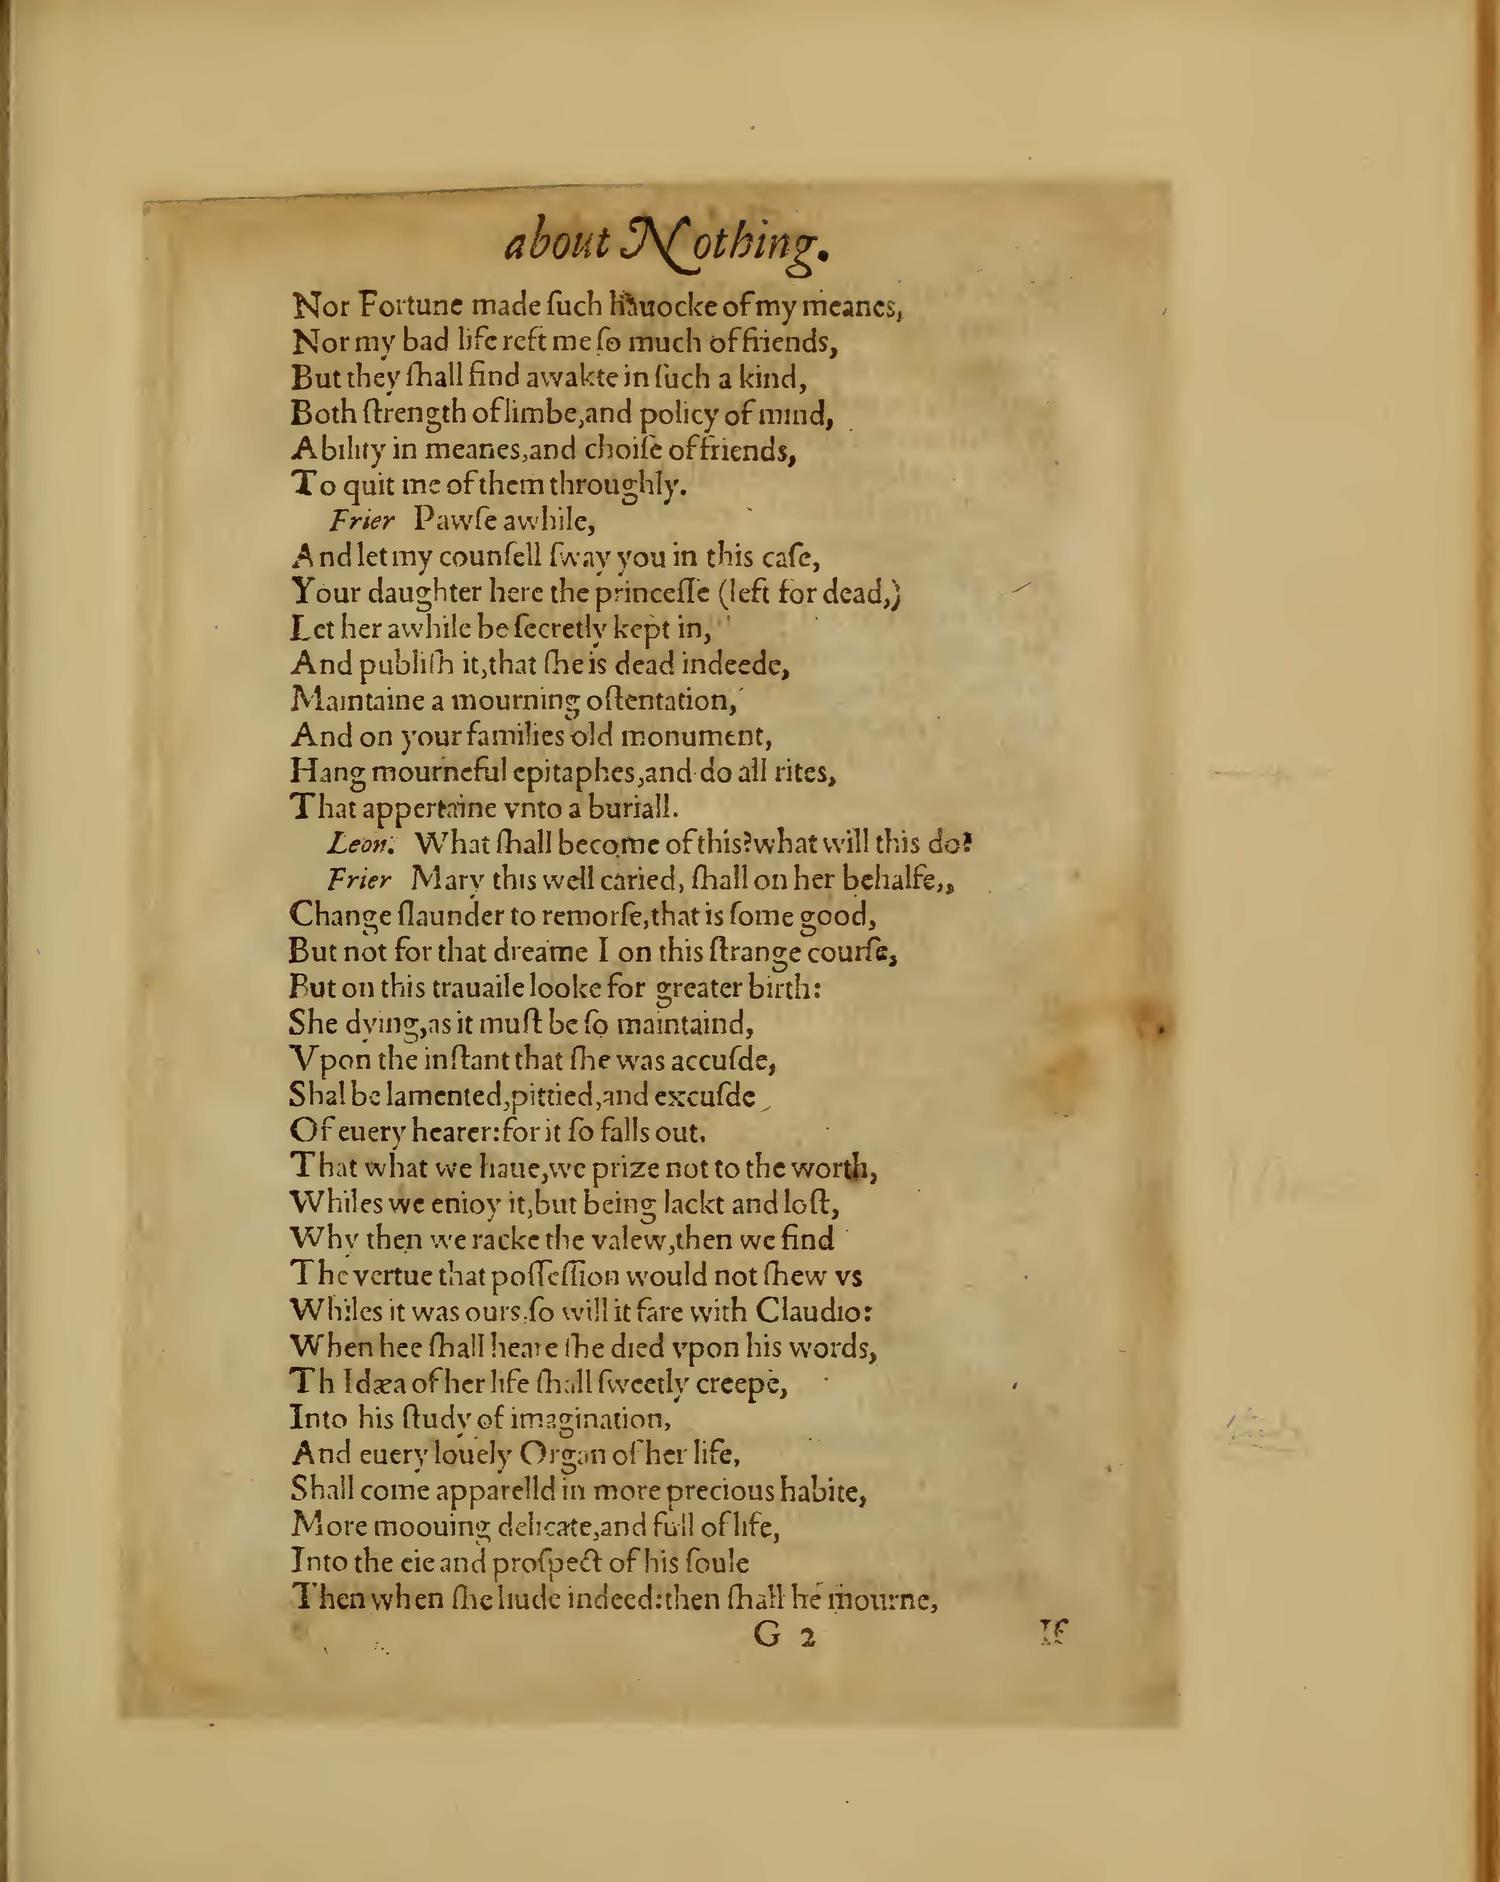 about Nothing.
Nor Fortune made ſuch hauocke of my meanes,
Nor my bad life reft me ſo much of friends,
But they ſhall find awakte in ſuch a kind,
Both ſtrength of limbe,and policy of mind,
Ability in meanes,and choiſe of friends,
To quit me of them throughly.
Frier Pawſe awhile,
And let my counſell ſway you in this caſe,
Your daughter here the princeſſe (left for dead,)
Let her awhile be ſecretly kept in,
And publiſh it,that ſhe is dead indeede,
Maintaine a mourning oſtentation,
And on your families old monument,
Hang mourneful epitaphes,and do all rites,
That appertaine vnto a buriall.
Leon. What ſhall become of this?what will this do?
Frier Mary this well caried, ſhall on her behalfe,,
Change ſlaunder to remorſe,that is ſome good,
But not for that dreame I on this ſtrange courſe,
But on this trauaile looke for greater birth:
She dying,as it muſt be ſo maintaind,
Vpon the inſtant that ſhe was accuſde,
Shal be lamented,pittied,and excuſde
Of euery hearer:for it ſo falls out.
That what we haue,we prize not to the worth,
Whiles we enioy it,but being lackt and loſt,
Why then we racke the valew,then we find
The vertue that poſſeſſion would not ſhew vs
Whiles it was ours,ſo will it fare with Claudio:
When hee ſhall heare ſhe died vpon his words,
Th Idæa of her life ſhall ſweetly creepe,
Into his ſtudy of imagination,
And euery louely Organ of her life,
Shall come apparelld in more precious habite,
More moouing delicate,and full of life,
Into the eie and proſpect of his ſoule
Then when ſhe liude indeed:then ſhall he mourne,
G 2 If